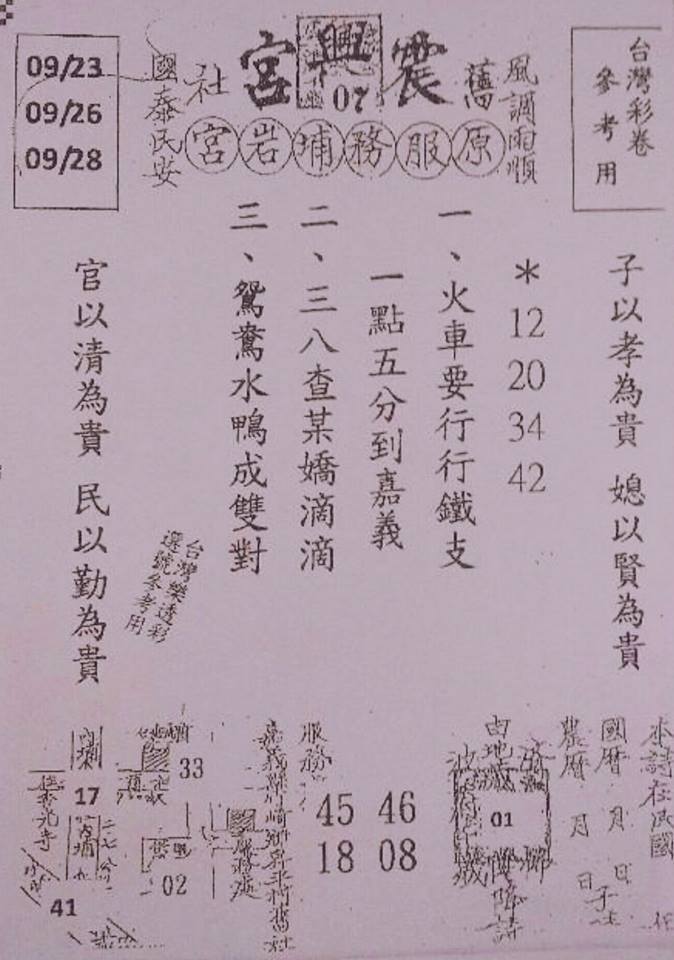 台灣彩卷
參考用
風調雨順
舊
震興宮
07
社
國泰民安
原服務埔岩宮
09/23
09/26
09/28
子以孝為貴 媳以賢為貴
＊12 20 34 42
一、火車要行行鐵支
一點五分到嘉義
二、三八查某嬌滴滴
三、鴛鴦水鴨成雙對
台灣樂透彩
選號參考用
官以清為貴 民以勤為貴
本詩在民國
國曆 月 日
農曆 月 日
01
46 08
45 18
服務
33
02
17
41